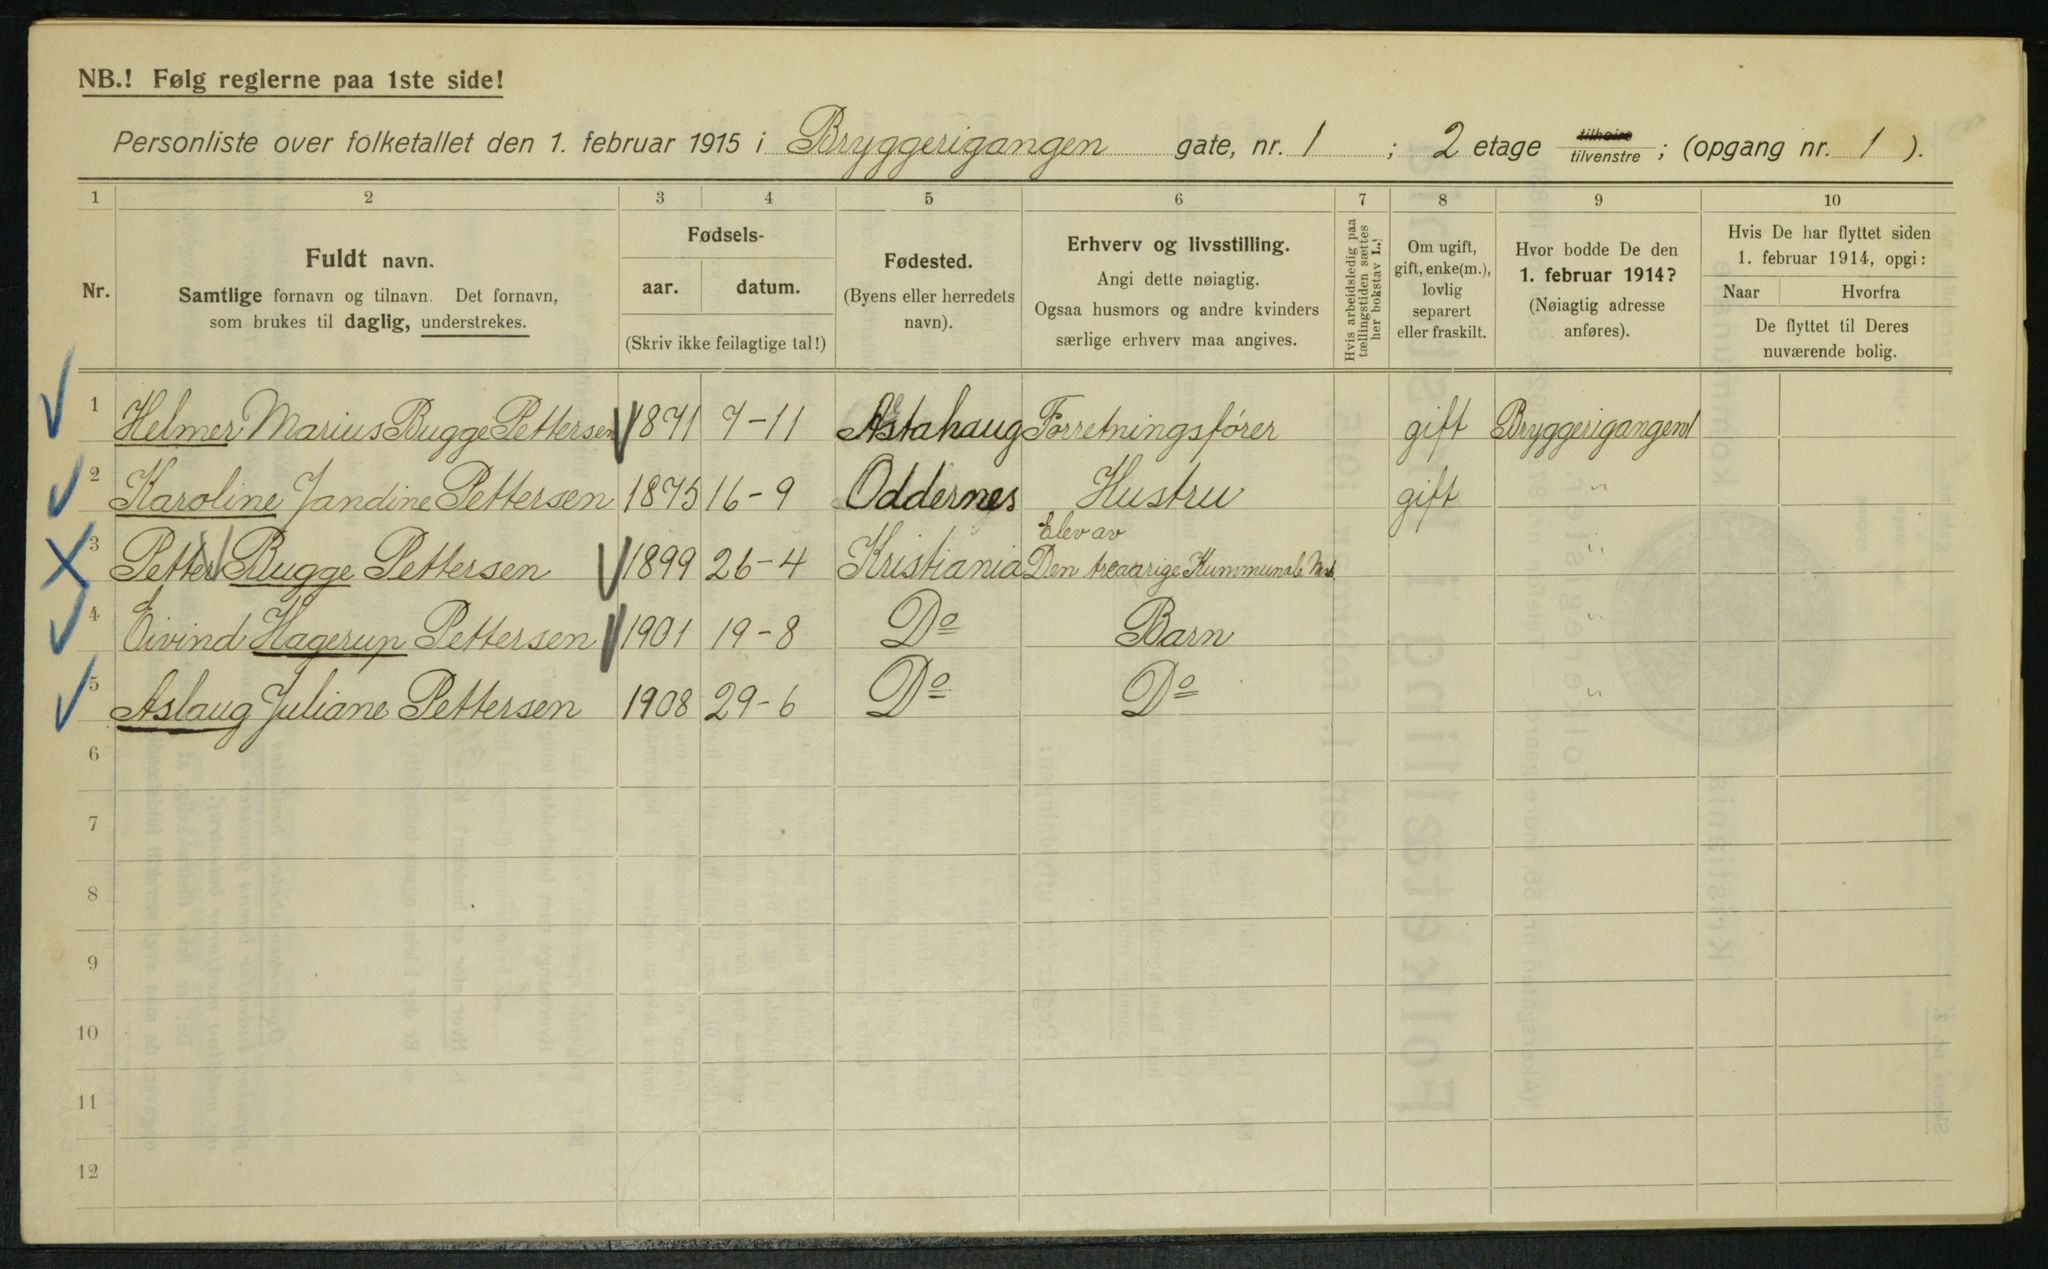 NB.! Følg reglerne paa 1ste side!
Personliste over folketallet den 1. februar 1915 i Bryggerigangen gate, nr. 1 ; 2 etage tilhøire tilvenstre ; (opgang nr. 1 ).
1 2 3 4 5 6 7 8 9 10
Nr.
Fuldt navn.
Samtlige fornavn og tilnavn. Det fornavn,
som brukes til daglig, understrekes.
Fødsels-
aar. datum.
(Skriv ikke feilagtige tal!)
Fødested.
(Byens eller herredets
navn).
Erhverv og livsstilling.
Angi dette nøiagtig.
Ogsaa husmors og andre kvinders
særlige erhverv maa angives.
Hvis arbeidsledig paa
tællingstiden sættes
her bokstav L.!
Om ugift,
gift, enke(m.),
lovlig
separert
eller fraskilt.
Hvor bodde De den
1. februar 1914?
(Nøiagtig adresse
anføres).
Hvis De har flyttet siden
1. februar 1914, opgi:
Naar Hvorfra
De flyttet til Deres
nuværende bolig.
1 Helmer Marius Bugge Pettersen 1871 7-11 Forretningsfører gift Bryggerigangen 1
2 Karoline Jandine Pettersen 1875 16-9 Oddernes Hustru gift "
Elev av
3 Petter Bugge Pettersen 1899 26-4 Kristiania Den treaarige Kummunale "
4 Eivind Hagerup Pettersen 1901 19-8 Do Barn "
5 Aslaug Juliane Pettersen 1908 29-6 Do Do "
6
7
8
9
10
11
12